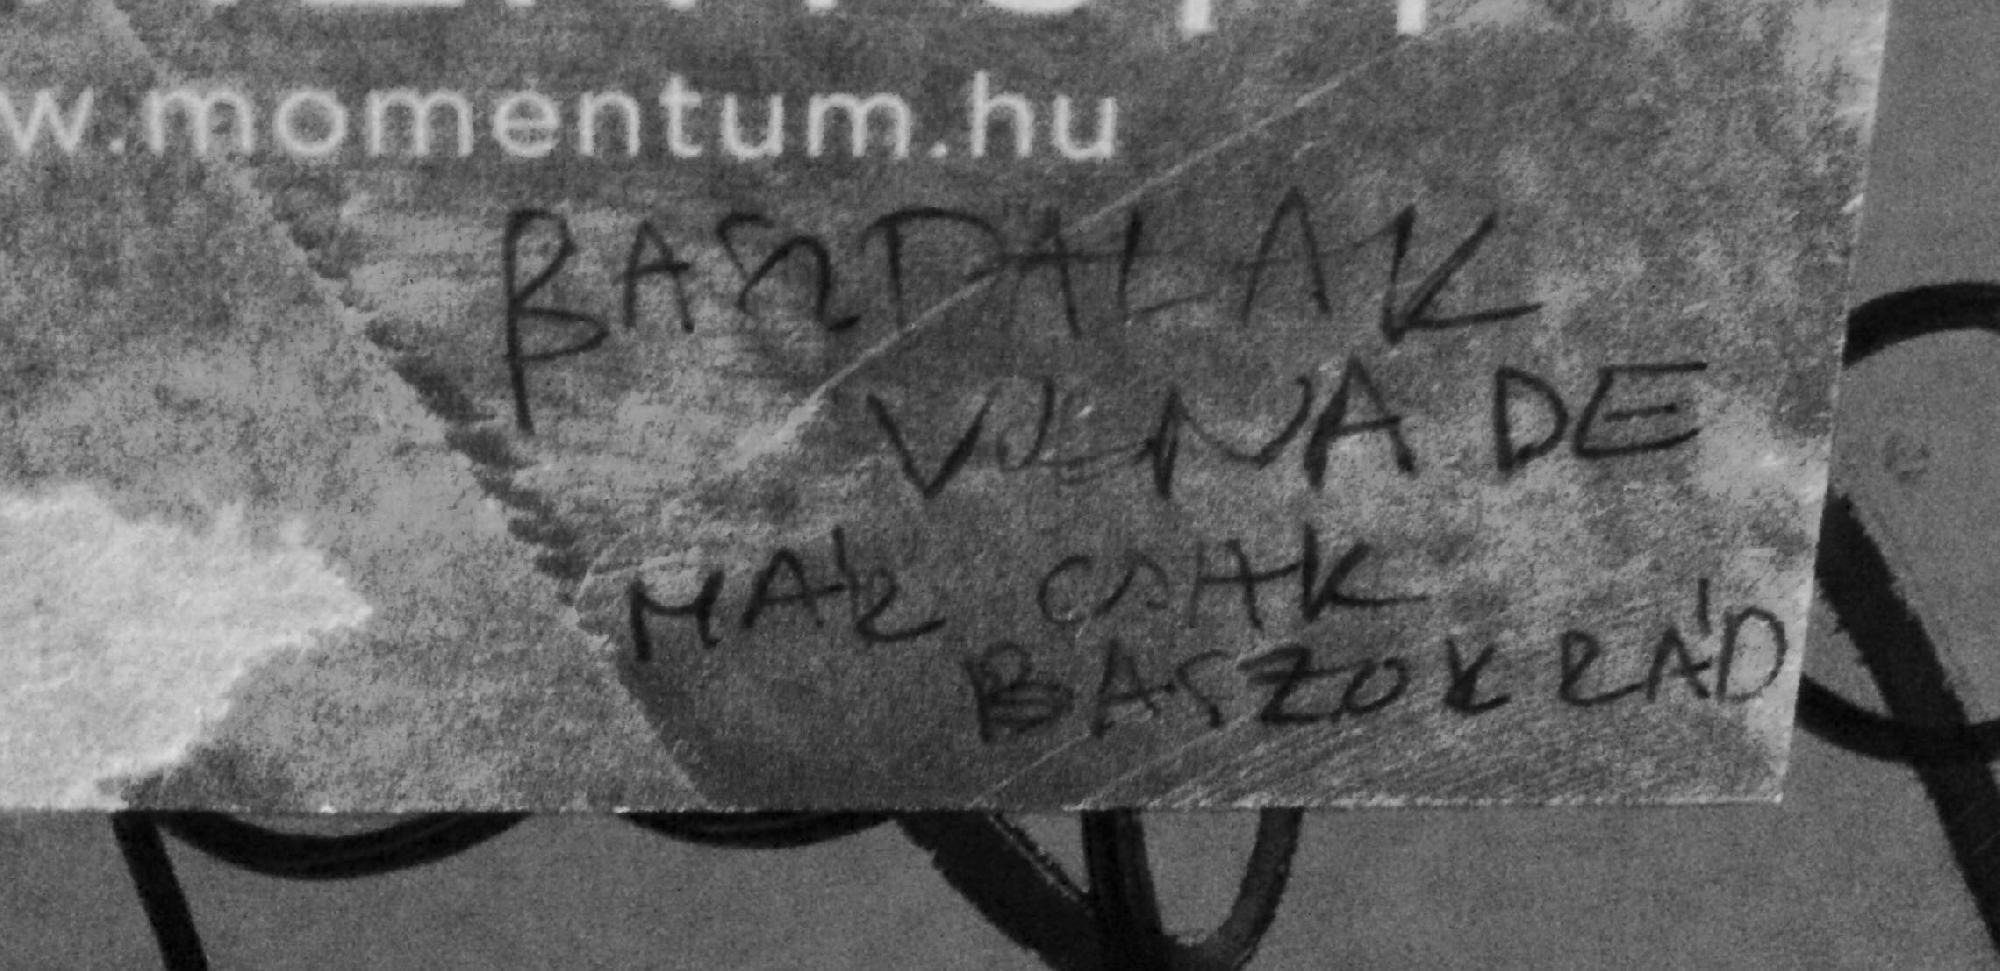 w.momentum.hu
BASZDALAK
VÓLNA DE
MÁR CSAK
BASZOK RÁD